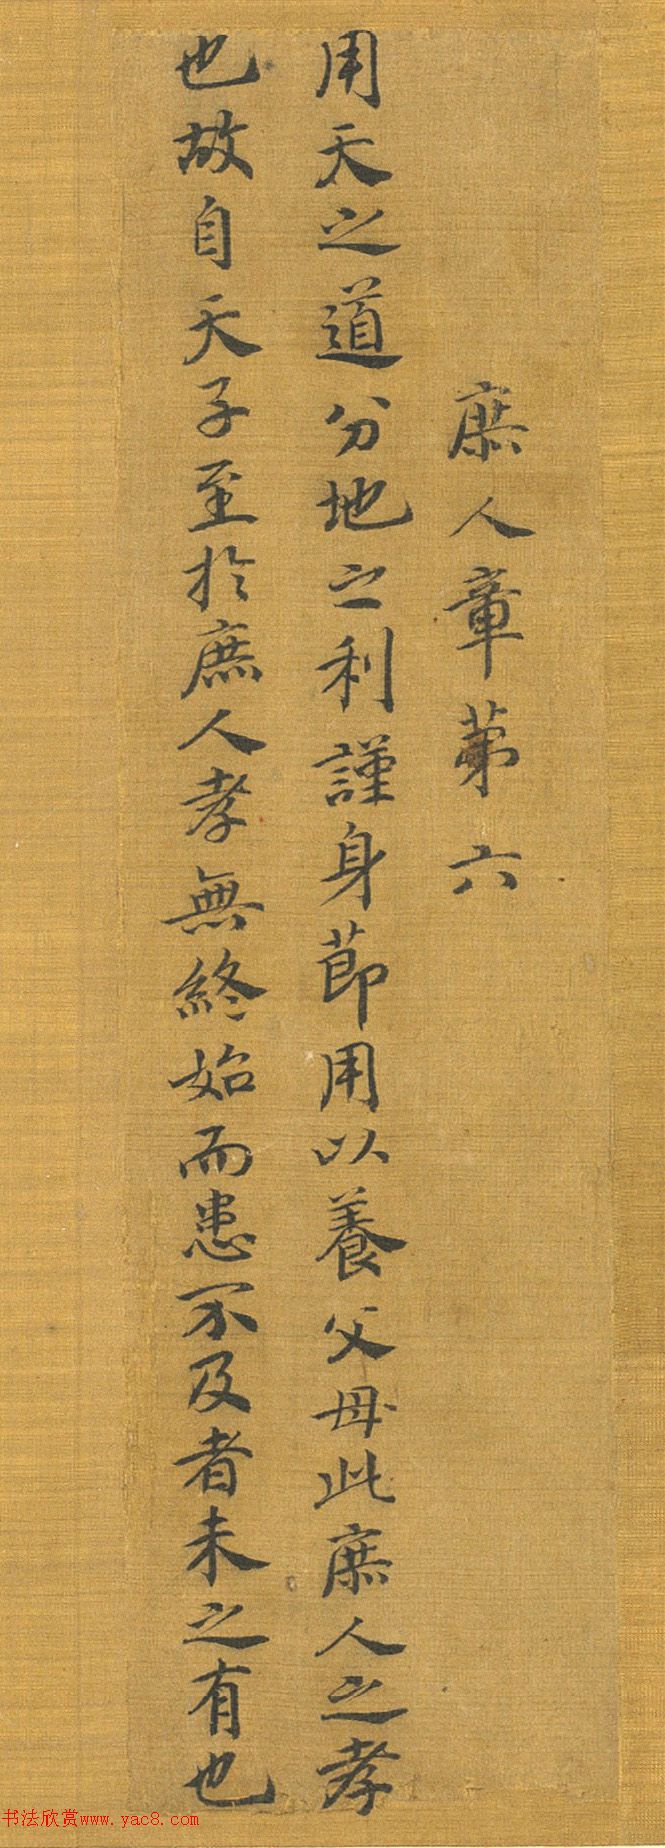 庶人章第六
用天之道分地之利謹身節用以養父母此庶人之孝
也故自天子至於庶人孝無終始而患不及者未之有也
书法欣赏www.yac8.com